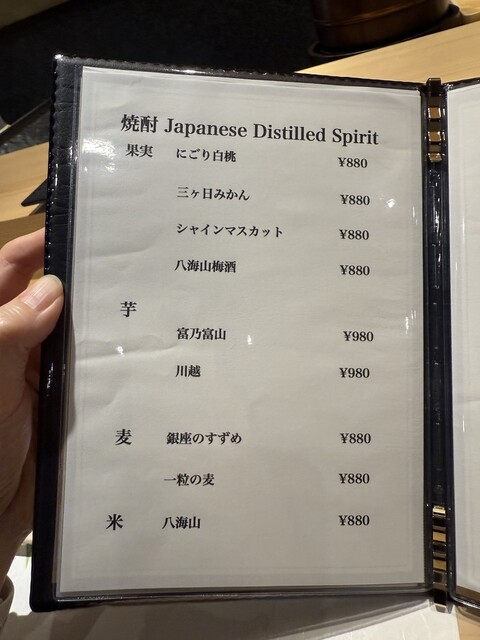 焼酎 Japanese Distilled Spirit
果実 にごり白桃 ¥880
三ヶ日みかん ¥880
シャインマスカット ¥880
八海山梅酒 ¥880
芋
富乃富山 ¥980
川越 ¥980
麦 銀座のすずめ ¥880
一粒の麦 ¥880
米 八海山 ¥880